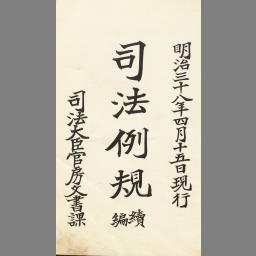 明治三十八年四月十五日現行
司法例規
續編
司法大臣官房文書課